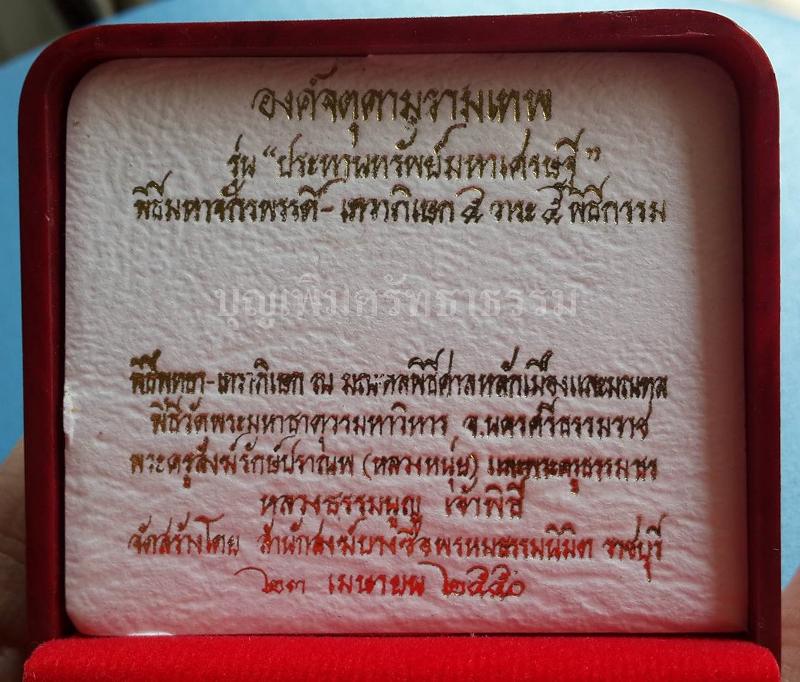 องค์จตุคามรามเทพ
รุ่น "ประทานทรัพย์มหาเศรษฐี"
พิธีมหาจักรพรรดิ์-เทวาภิเษก ๕ วาระ ๕ พิธีกรรม
บุญเพิ่มศรัทธาธรรม
พิธีพุทธา-เทวาภิเษก ณ มณฑลพิธีศาลหลักเมืองและมณฑล
พิธีวัดพระมหาธาตุวรมหาวิหาร จ.นครศรีธรรมราช
พระครูสังฆ์รักษ์ปราณพ (หลวงหนุ่ย) และพระครูธรรมธร
หลวงธรรมบุญ เจ้าพิธี
จัดสร้างโดย สำนักสงฆ์บางซื่อพรหมธรรมนิมิต ราชบุรี
๒๓ เมษายน ๒๕๕๐